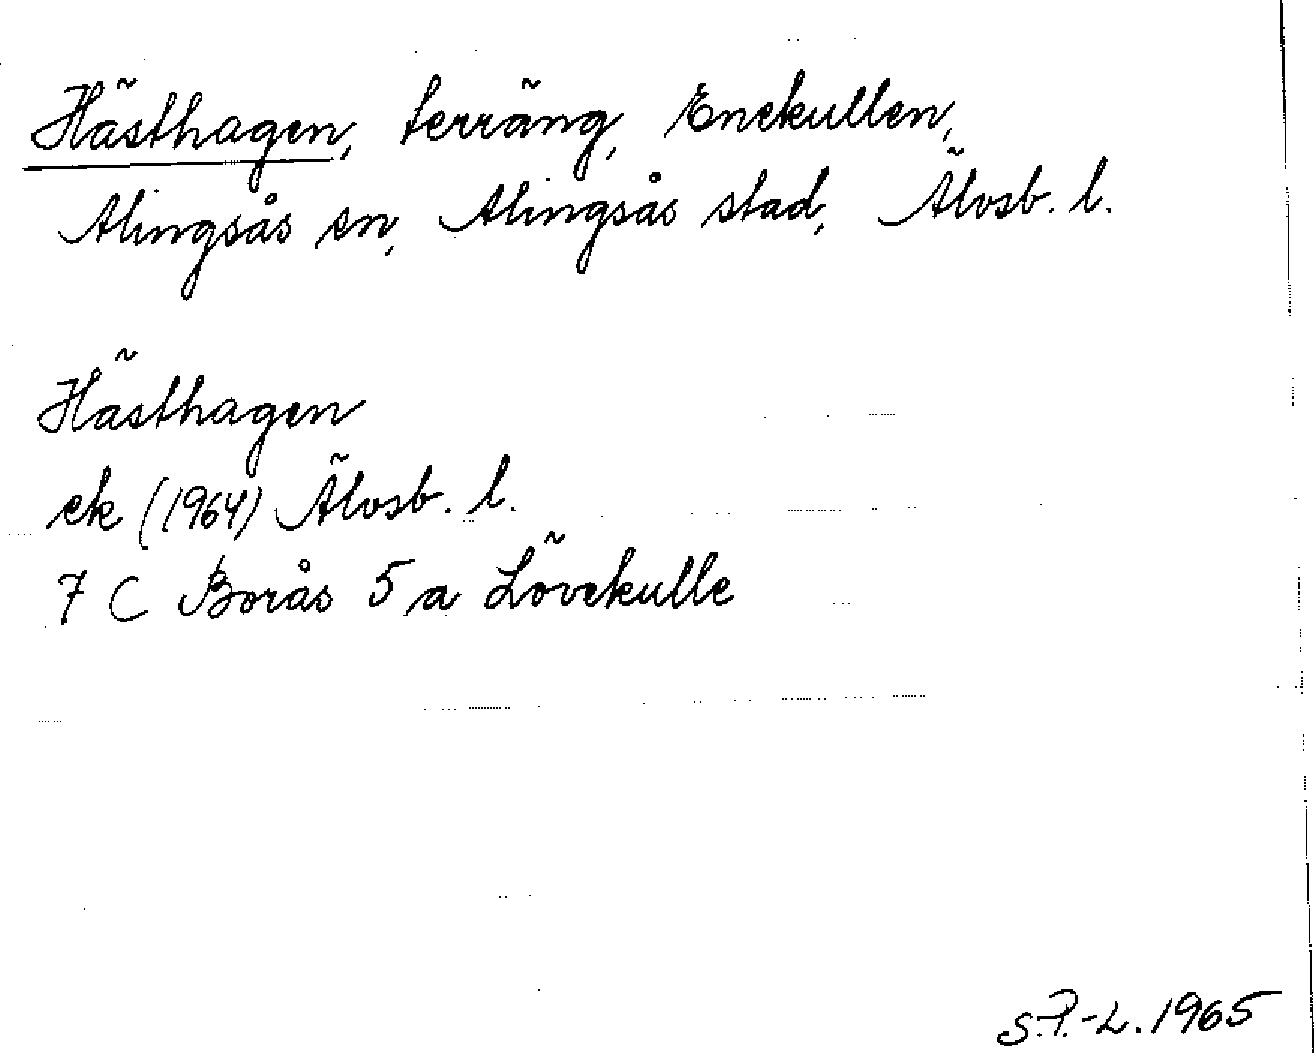 Hästhagen, terräng, Enekullen,
Alingsås sn, Alingsås stad, Älvsb. l.
Hästhagen
ek (1964) Älvsb. l.
7 C Borås 5 a Lövekulle
S.P.-L. 1965